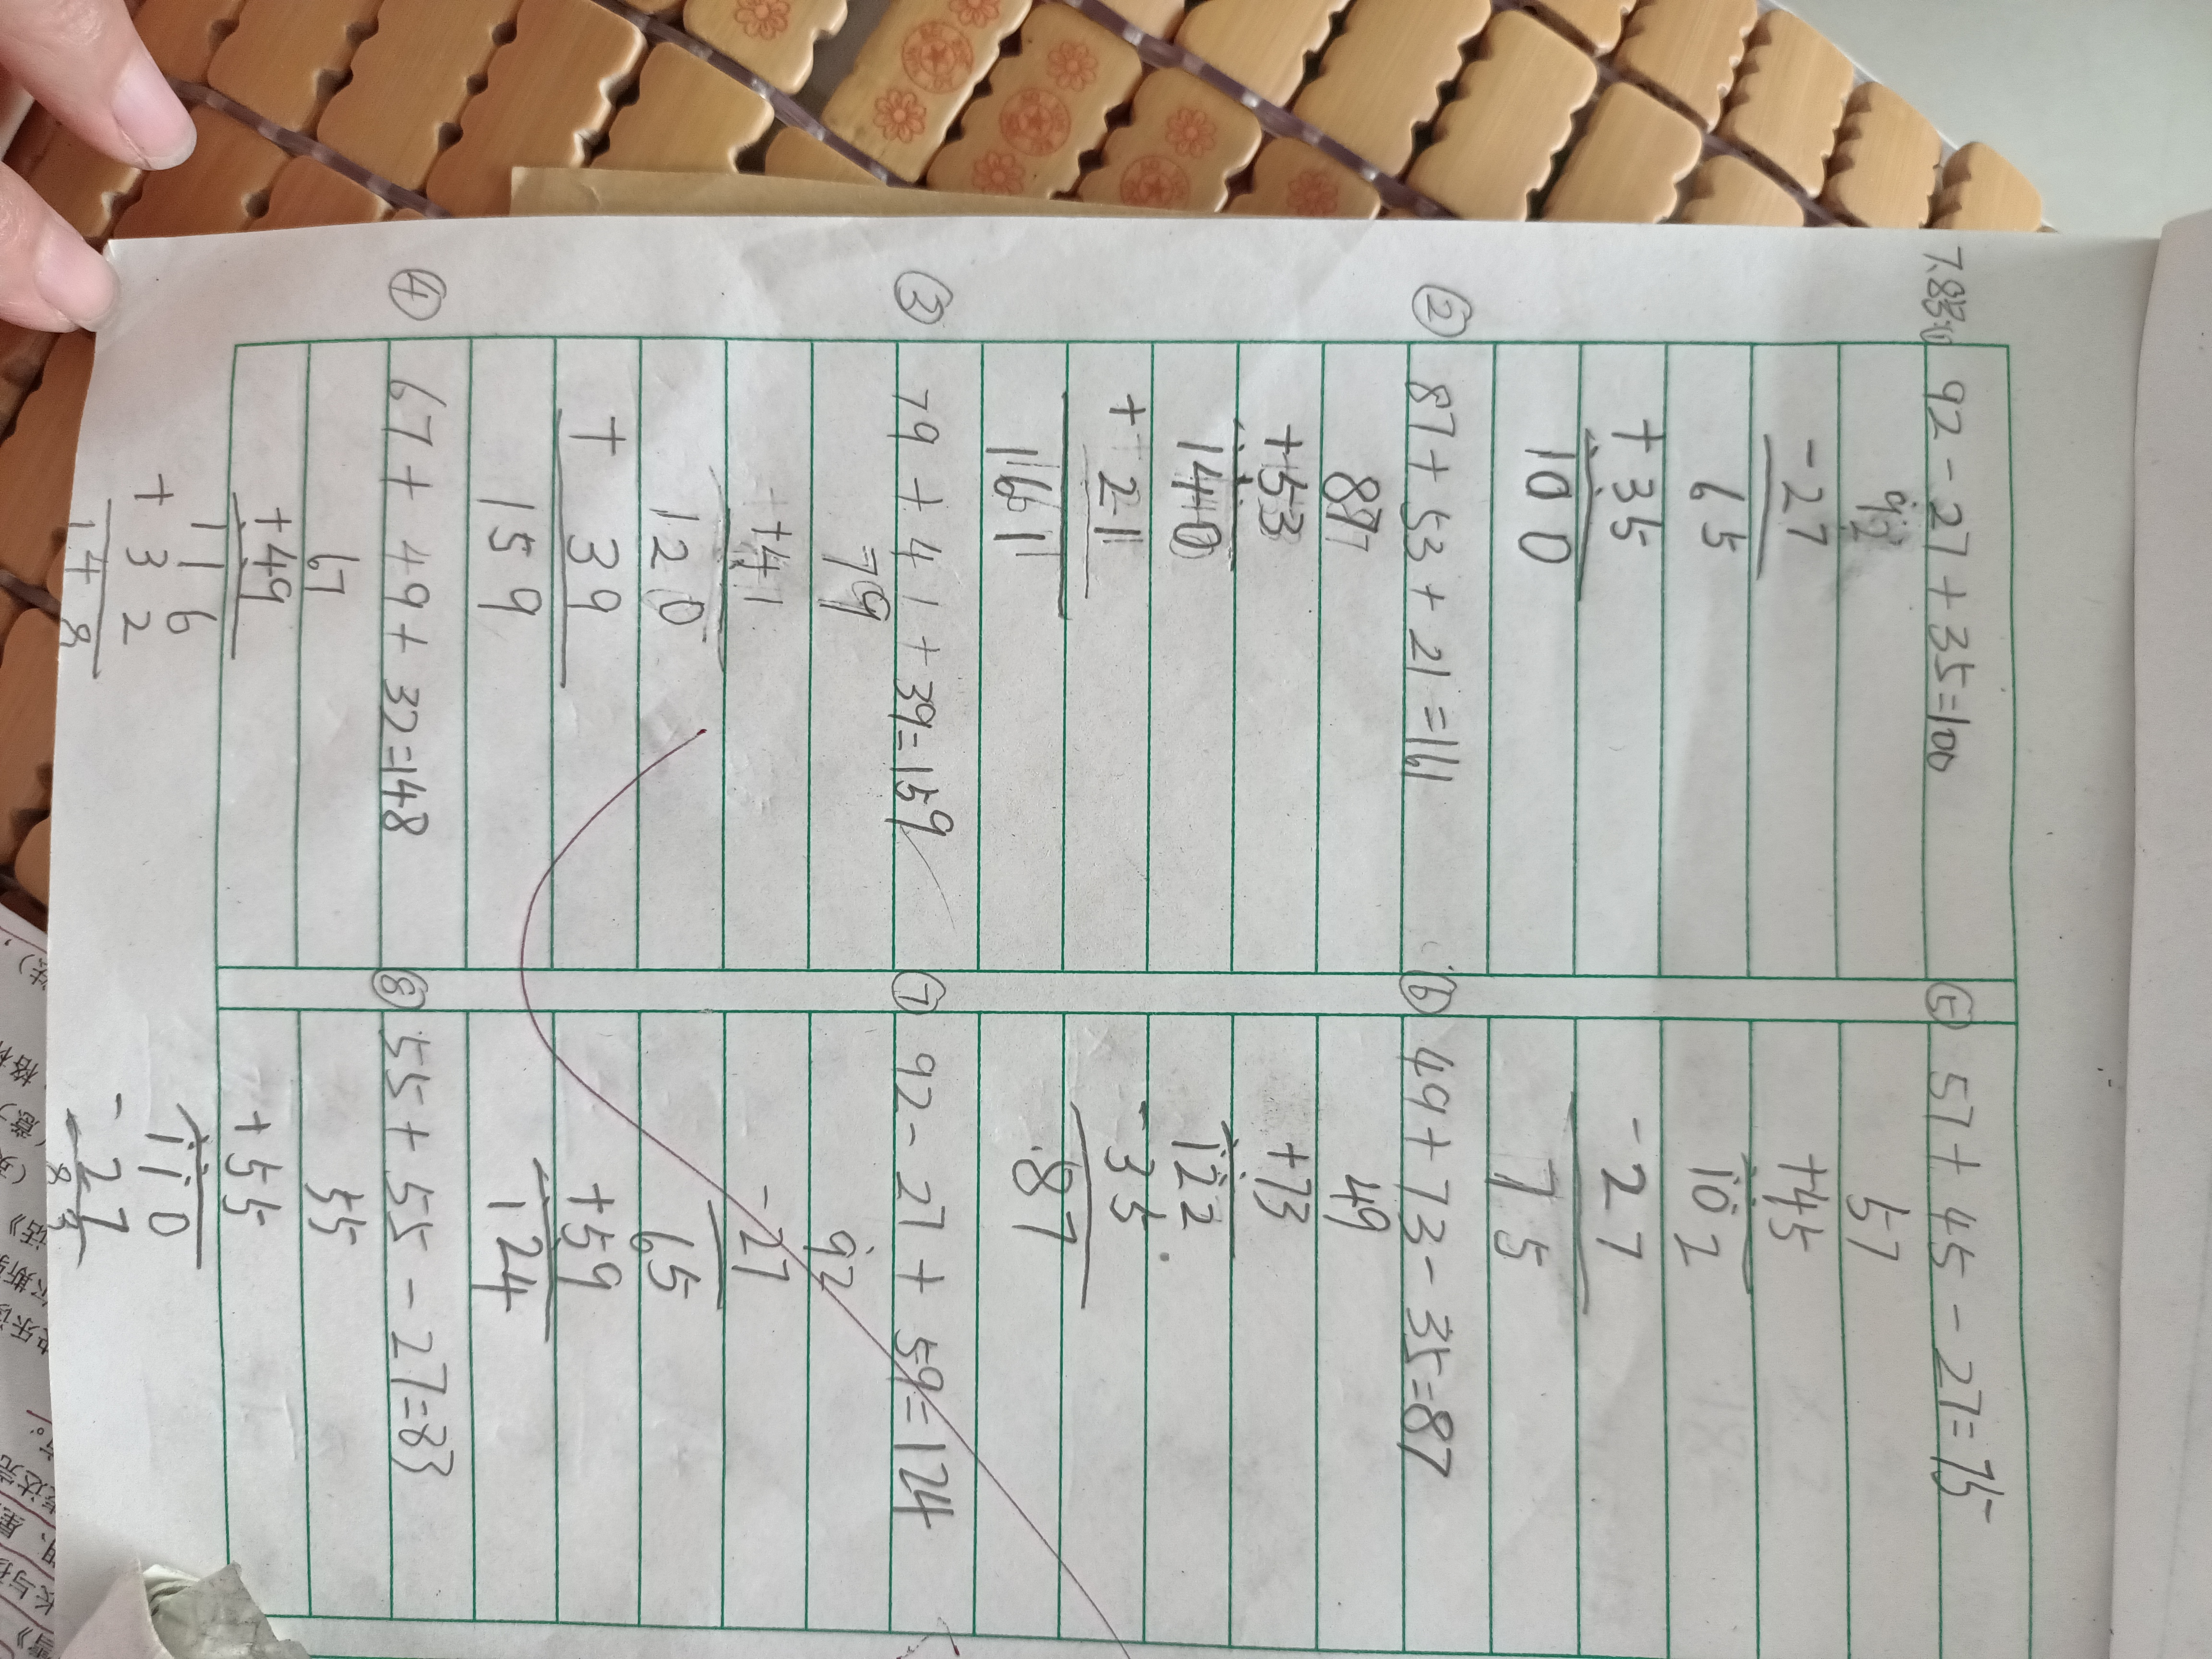 7.8 ① 92-27+35=100
92
-27
65
+35
100
② 87+53+21=161
87
+53
140
+21
161
③ 79+41+39=159
79
+41
120
+39
159
④ 67+49+32=148
67
+49
116
+32
148
⑤ 57+45-27=75
57
+45
102
-27
75
⑥ 49+73-35=87
49
+73
122
-35
87
⑦ 92-27+59=124
92
-27
65
+59
124
⑧ 55+55-27=83
55
+55
110
-27
83